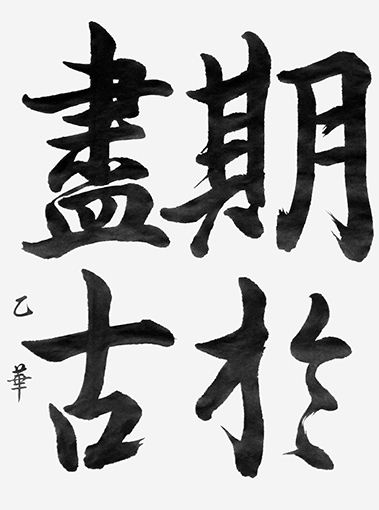 期於
盡古
乙華